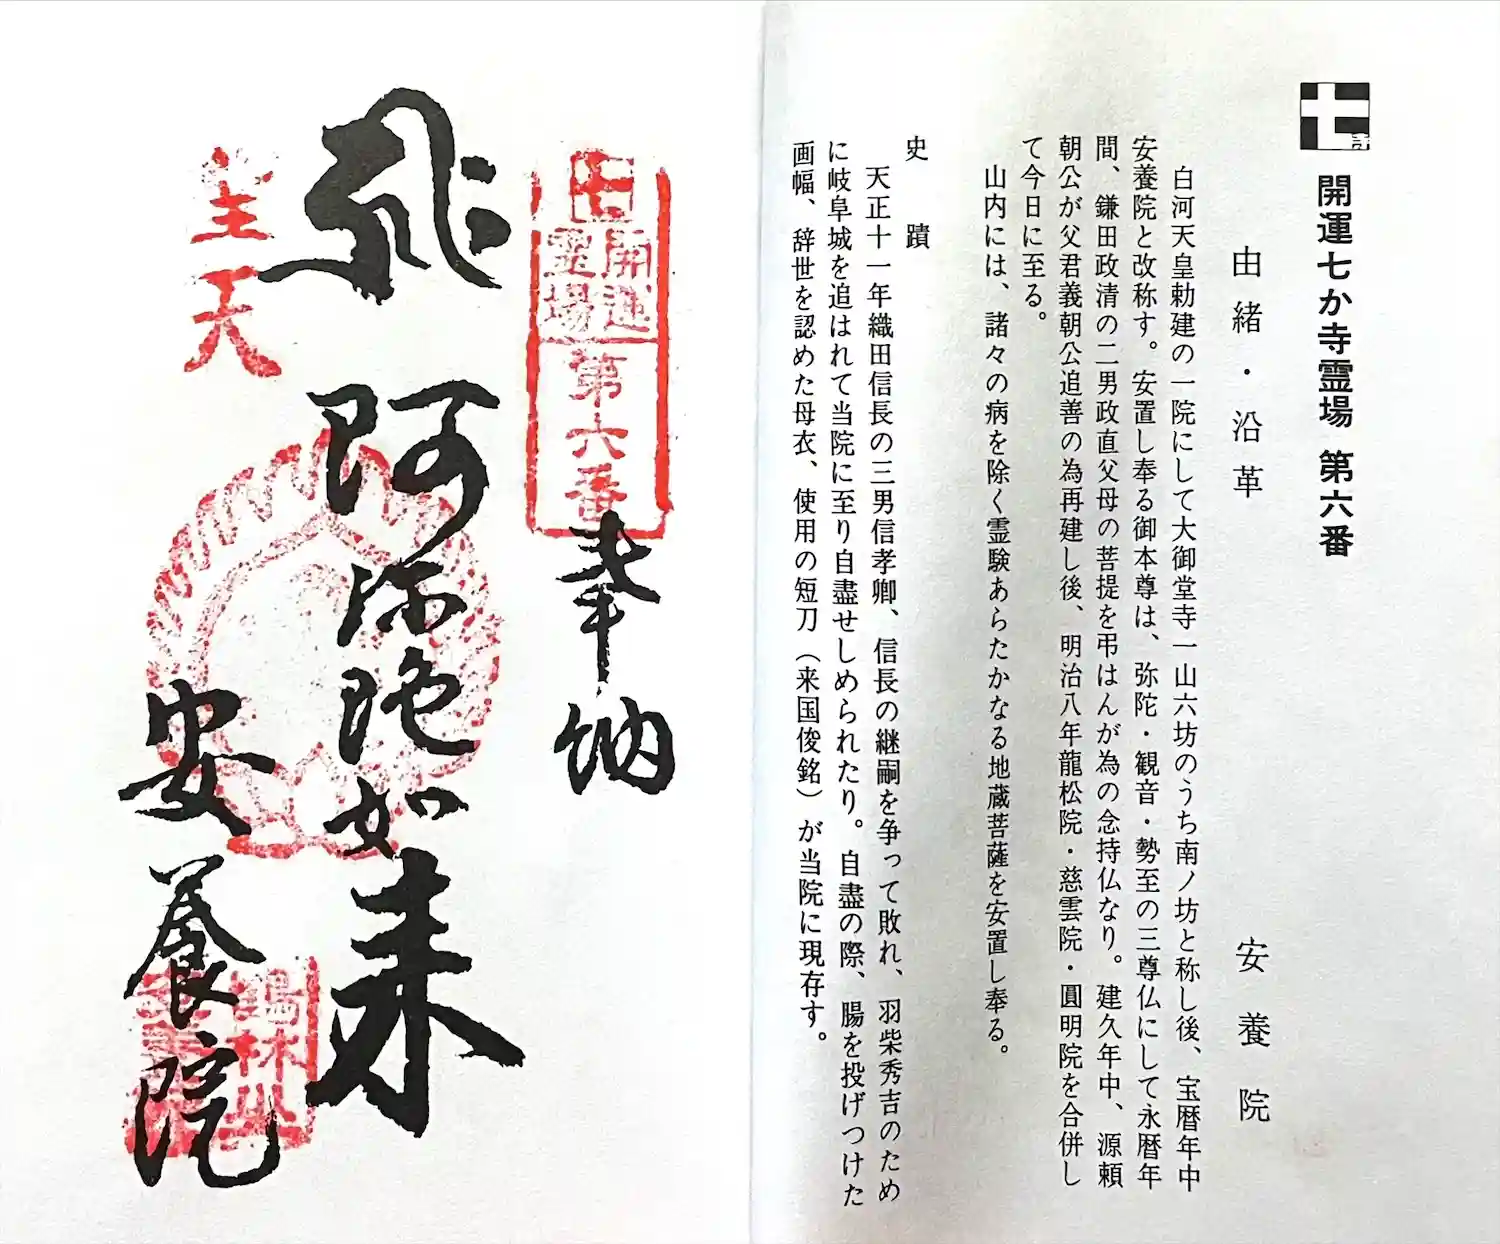 七寺
開運七か寺霊場 第六番
由緒・沿革 安養院
白河天皇勅建の一院にして大御堂寺一山六坊のうち南ノ坊と称し後、宝暦年中
安養院と改称す。安置し奉る御本尊は、弥陀・観音・勢至の三尊仏にして永暦年
間、鎌田政清の二男政直父母の菩提を弔はんが為の念持仏なり。建久年中、源頼
朝公が父君義朝公追善の為再建し後、明治八年龍松院・慈雲院・圓明院を合併し
て今日に至る。
山内には、諸々の病を除く霊験あらたかなる地蔵菩薩を安置し奉る。
史蹟
天正十一年織田信長の三男信孝卿、信長の継嗣を争って敗れ、羽柴秀吉のため
に岐阜城を追はれて当院に至り自盡せしめられたり。自盡の際、腸を投げつけた
画幅、辞世を認めた母衣、使用の短刀（来国俊銘）が当院に現存す。
七
開運
霊場
第六番
奉納
阿弥陀如来
安養院